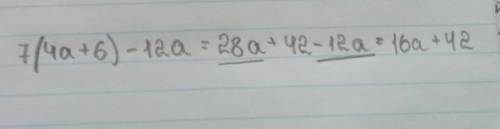 7(4a+6)-12a = 28a + 42 - 12a = 16a + 42